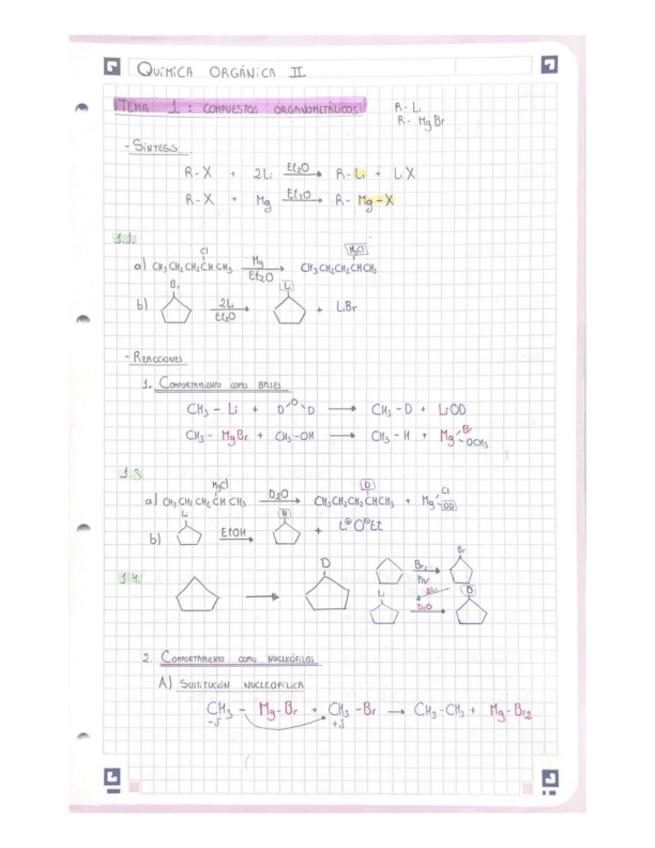 QUÍMICA ORGÁNICA II
TEMA 1: COMPUESTOS ORGANOMETÁLICOS
R-Li
R-MgBr
- SÍNTESIS
R-X + 2Li Et₂O → R-Li + LiX
R-X + Mg Et₂O → R-Mg-X
1.1.
Cl MgCl
a) CH₃CH₂CH₂CHCH₃ Mg Et₂O → CH₃CH₂CH₂CHCH₃
Br Li
b) 2Li Et₂O → + LiBr
- REACCIONES
1. COMPORTAMIENTO COMO BASES
CH₃-Li + D-O-D → CH₃-D + LiOD
CH₃-MgBr + CH₃-OH → CH₃-H + Mg Br OCH₃
1.3.
MgCl D
a) CH₃CH₂CH₂CHCH₃ D₂O → CH₃CH₂CH₂CHCH₃ + Mg Cl OD
Li H
b) EtOH → + Li⊕O⊖Et
1.4.
D
Br₂ hν → Br
2Li
Li D₂O → D
2. COMPORTAMIENTO COMO NUCLEÓFILOS
A) SUSTITUCIÓN NUCLEOFÍLICA
CH₃-Mg-Br + CH₃-Br → CH₃-CH₃ + Mg-Br₂
-δ +δ